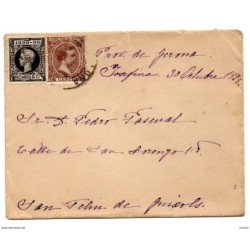 1898-99
Prov. de Gerona
30 Octubre
Sr. D. Pedro Pascual
Calle de San Lorenzo 15
San Feliu de Guixols.